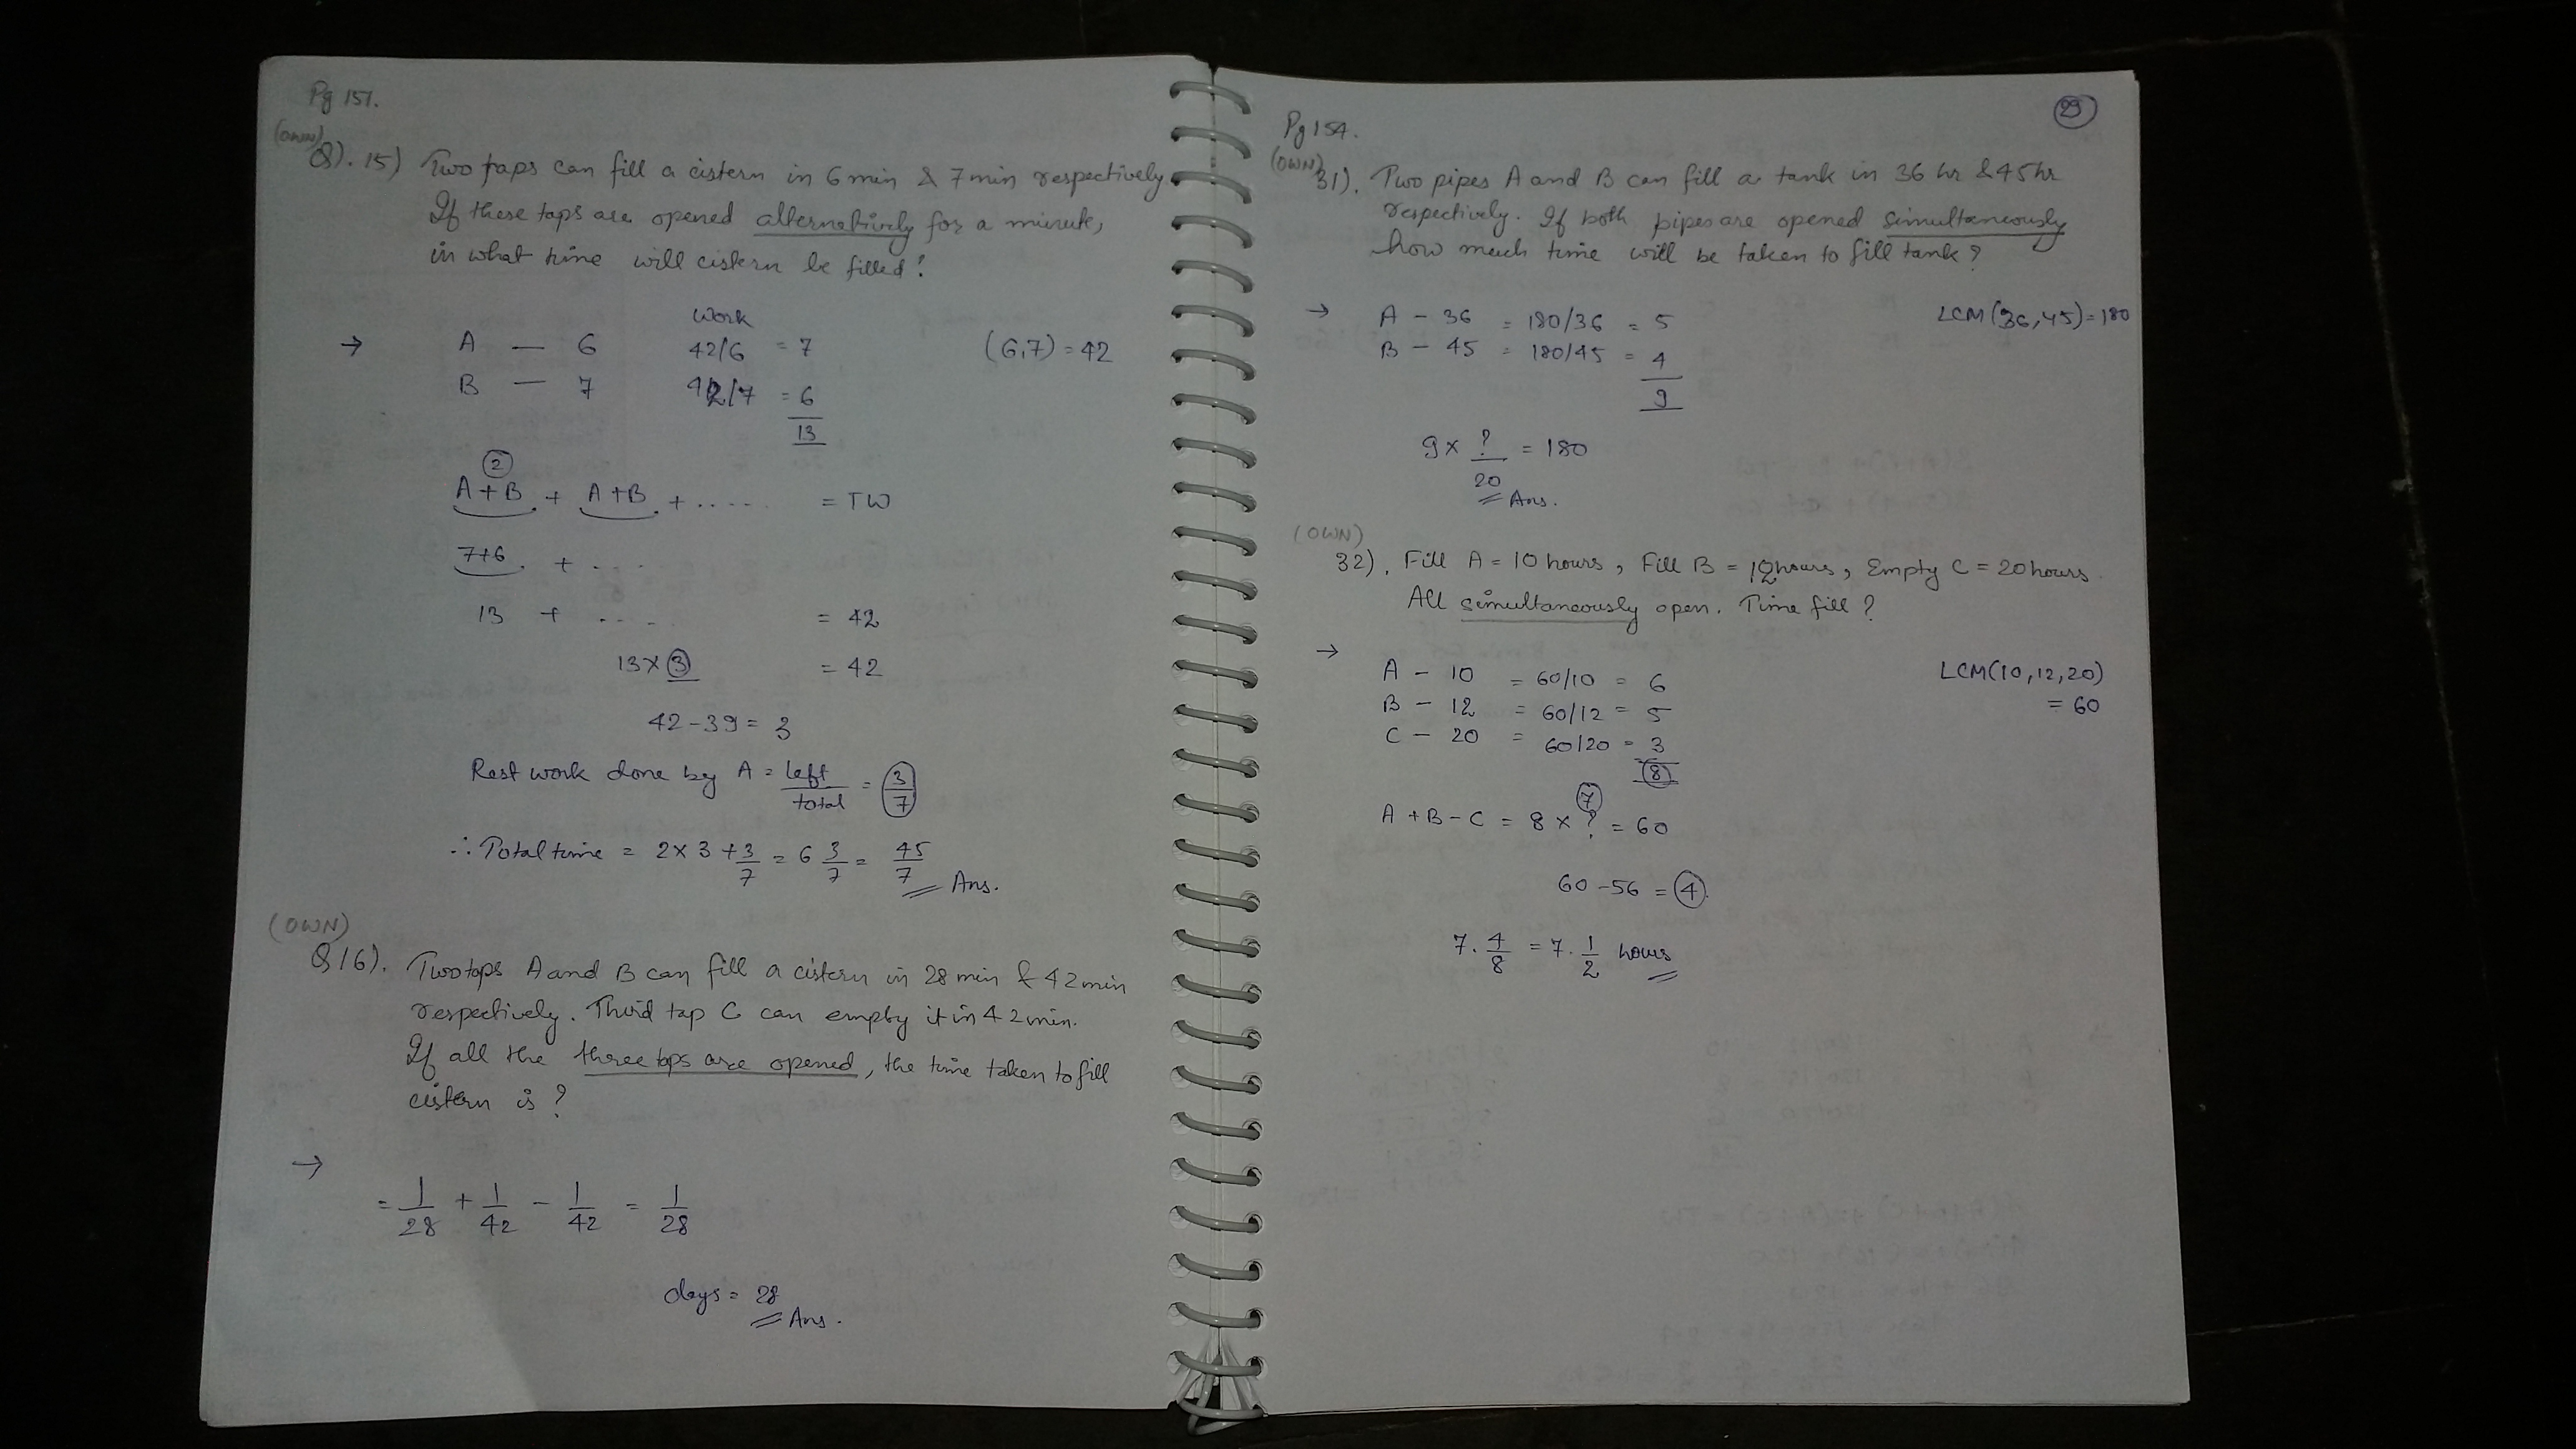 Pg 151.
(OWN)
Q). 15) Two taps can fill a cistern in 6 min & 7 min respectively
If these taps are opened alternatively for a minute,
in what time will cistern be filled?
→ Work
A — 6 42/6 = 7 (6,7) = 42
B — 7 42/7 = 6
13
②
A+B + A+B + ..... = TW
7+6 + ...
13 + .... = 42
13 × ③ = 42
42 - 39 = 3
Rest work done by A = left/total = 3/7
∴ Total time = 2 × 3 + 3/7 = 6 3/7 = 45/7 Ans.
(OWN)
Q 16). Two taps A and B can fill a cistern in 28 min & 42 min
respectively. Third tap C can empty it in 42 min.
If all the three taps are opened, the time taken to fill
cistern is?
→
= 1/28 + 1/42 - 1/42 = 1/28
days = 28
Ans.
Pg 154.
(OWN)
31). Two pipes A and B can fill a tank in 36 hr & 45 hr
respectively. If both pipes are opened simultaneously
how much time will be taken to fill tank?
→ A - 36 = 180/36 = 5 LCM(36,45) = 180
B - 45 = 180/45 = 4
9
9 × ? = 180
20
Ans.
(OWN)
32). Fill A = 10 hours, Fill B = 12 hours, Empty C = 20 hours.
All simultaneously open. Time fill?
→
A - 10 = 60/10 = 6 LCM(10,12,20)
B - 12 = 60/12 = 5 = 60
C - 20 = 60/20 = 3
⑧
⑦
A + B - C = 8 × ? = 60
60 - 56 = ④
7. 4/8 = 7. 1/2 hours